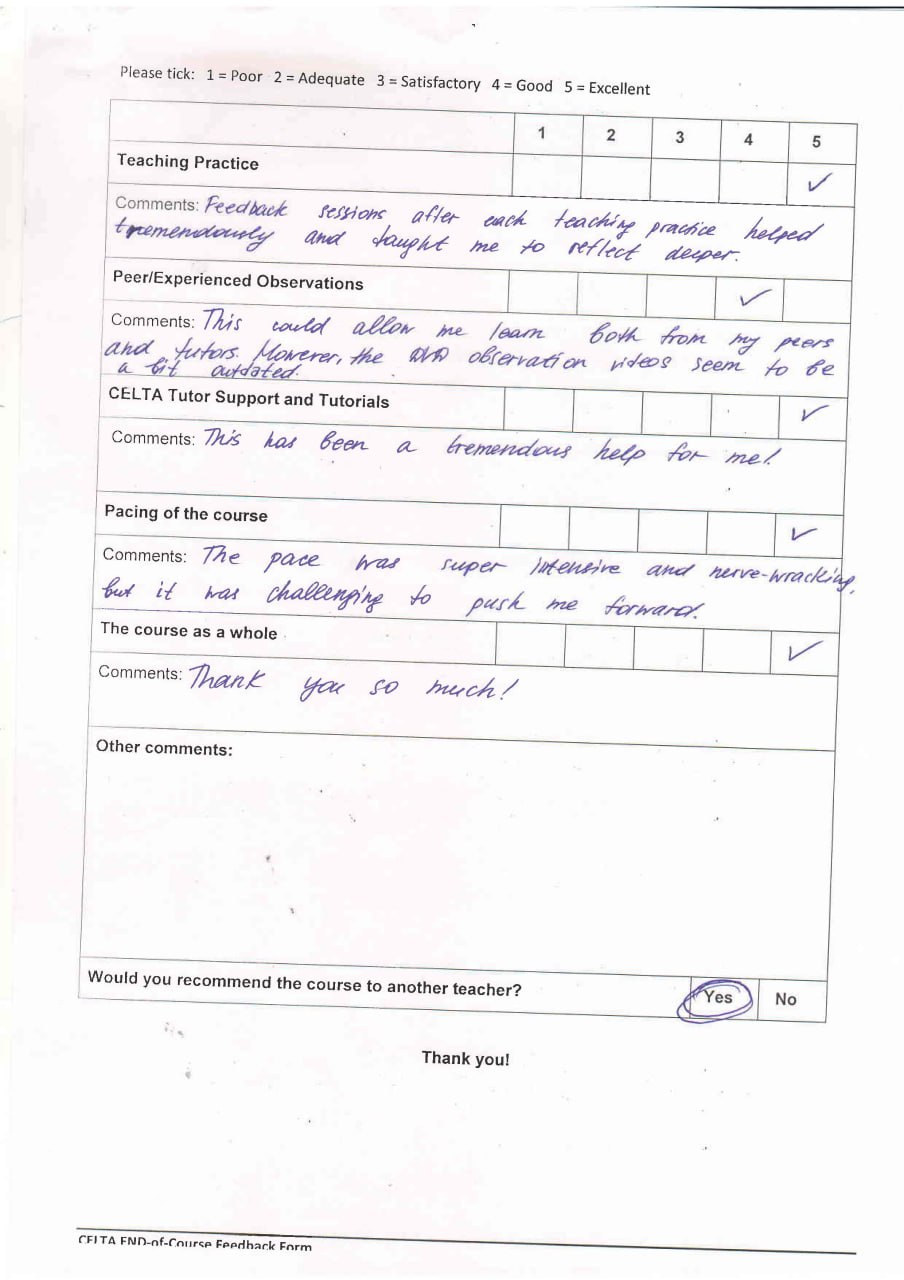 Please tick: 1 = Poor 2 = Adequate 3 = Satisfactory 4 = Good 5 = Excellent
1 2 3 4 5
Teaching Practice ✓
Comments: Feedback sessions after each teaching practice helped
tremendously and taught me to reflect deeper.
Peer/Experienced Observations ✓
Comments: This could allow me learn both from my peers
and tutors. However, the observation videos seem to be
a bit outdated.
CELTA Tutor Support and Tutorials ✓
Comments: This has been a tremendous help for me!
Pacing of the course ✓
Comments: The pace was super intensive and nerve-wracking,
but it was challenging to push me forward.
The course as a whole ✓
Comments: Thank you so much!
Other comments:
Would you recommend the course to another teacher? Yes No
Thank you!
CELTA END-of-Course Feedback Form